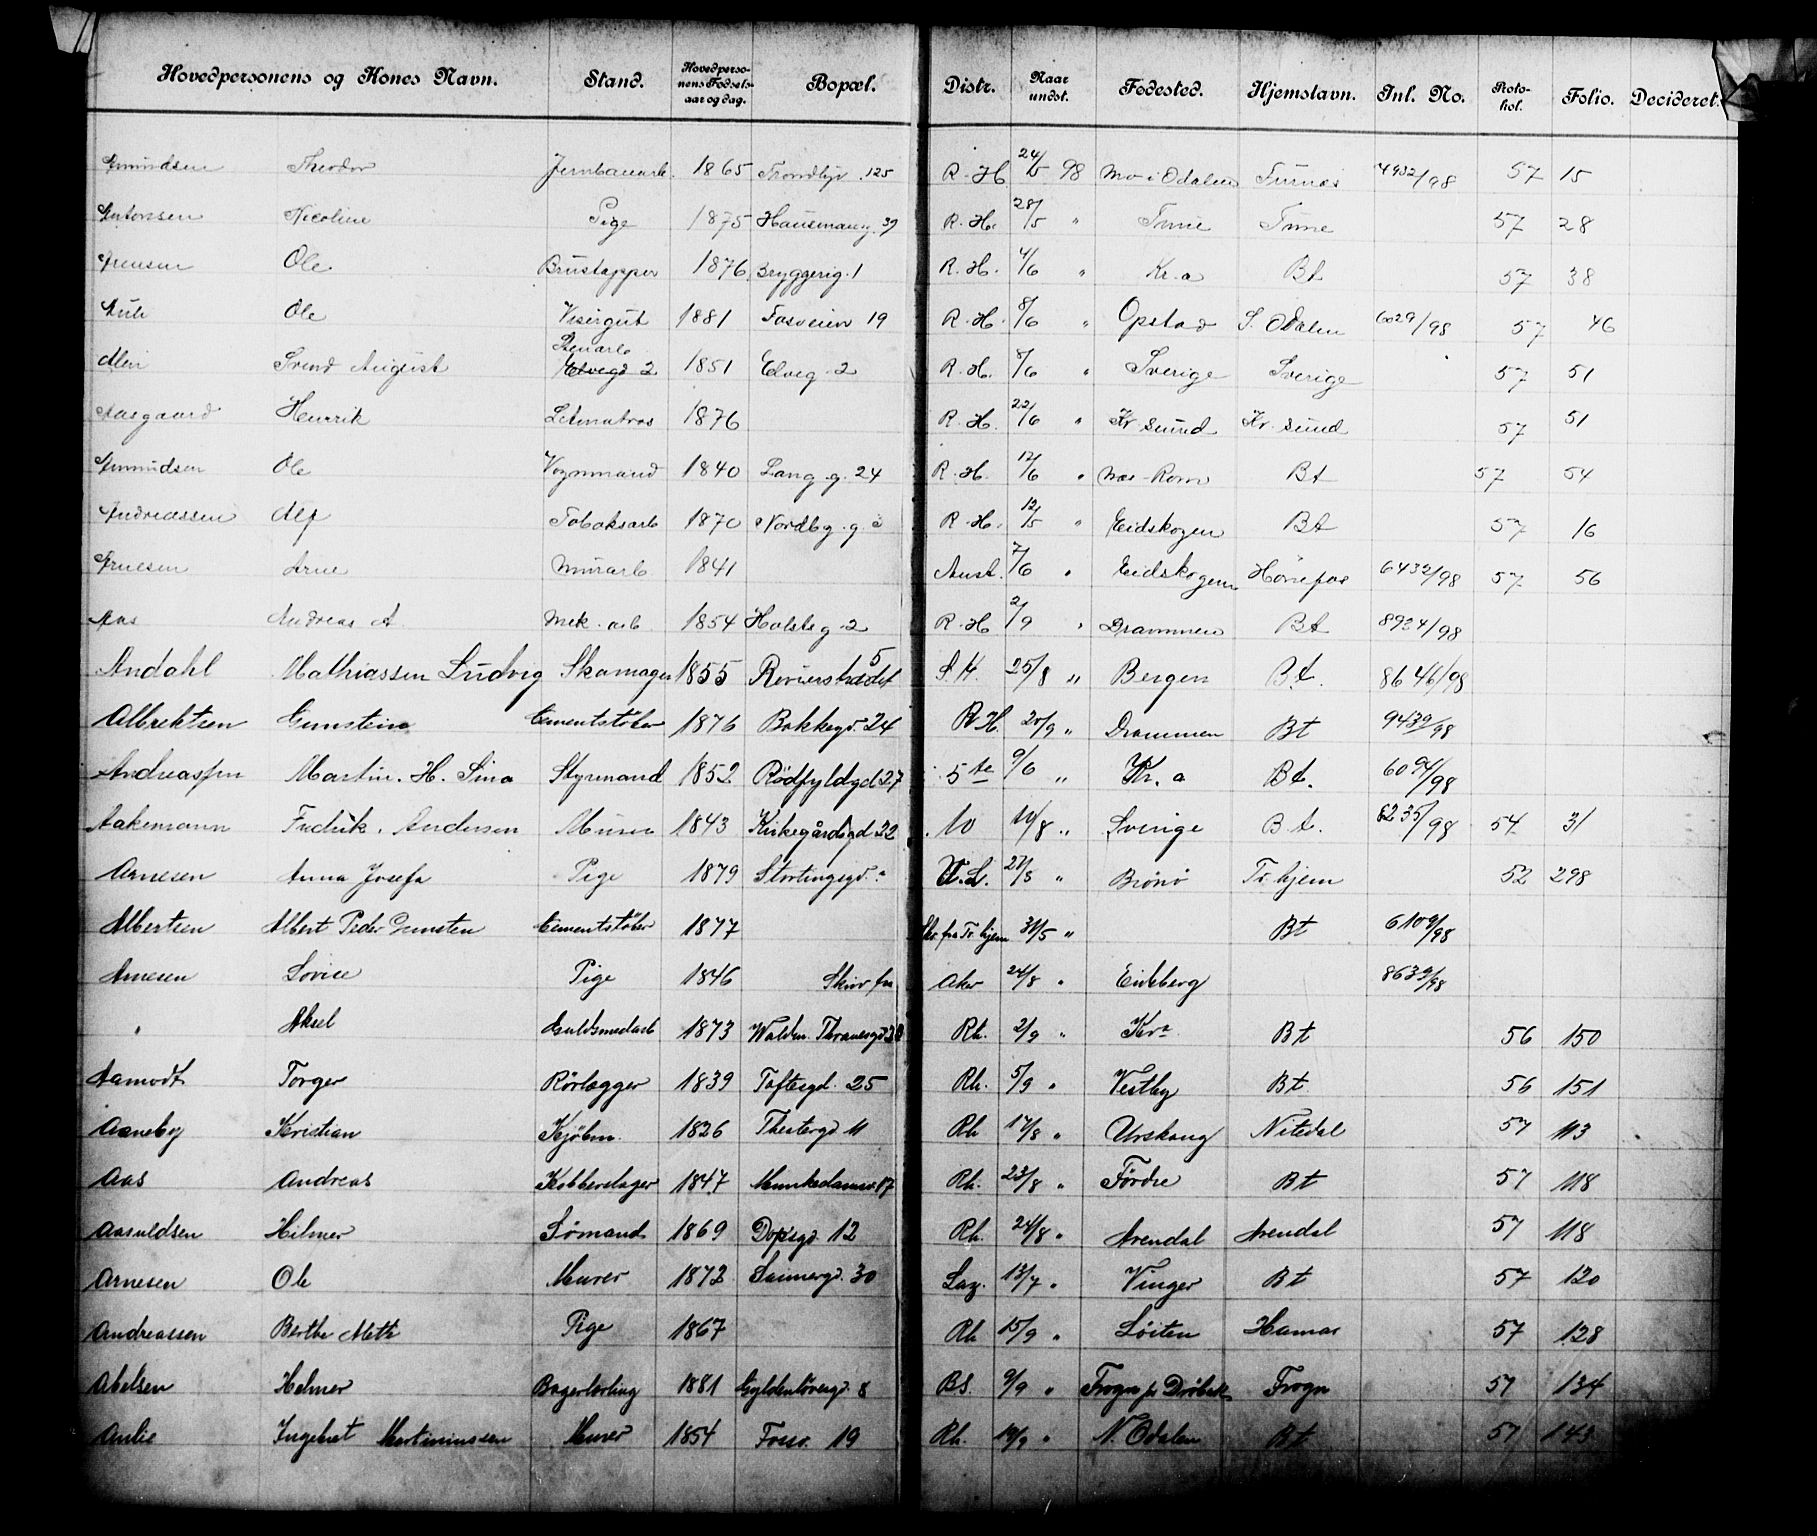 Hovedpersonens og Kones Navn. Stand. Hovedpersonens Fødselsaar og dag. Bopæl. Distr. Naar undst. Fødested. Hjemstavn. Inl. No. Protokol. Folio. Decideret.
Amundsen Theodor Jernbanearb. 1865 Trondhjv. 125 R.H. 24/5 98 Mo i Odalen Furnæs 4932/98 57 15
Antonsen Nicoline Pige 1875 Hausmansg. 39 R.H. 28/5 " Tune Tune 57 28
Ole Brustapper 1876 Bryggerig. 1 R.H. 4/6 " Kr.a Bt 57 38
Ole Visergut 1881 Fosveien 19 R.H. 8/6 " Opstad S. Odalen 6029/98 57 46
Svend August Stenarb Elvegd 2 1851 Elveg. 2 R.H. 8/6 " Sverige Sverige 57 51
Aasgaard Henrik Letmatros 1876 R.H. 22/6 " Kr.sund Kr.sund 57 51
Amundsen Ole Vognmand 1840 Lang.g. 24 R.H. 12/6 " Næs Rom Bt 57 54
Andreassen Alf Tobaksarb 1870 Nordbg.g R.H. 12/5 " Eidskogen Bt 57 16
Arnesen Arne Murarb 1841 Anst. 7/6 " Eidskogen Hönefos 6432/98 57 56
Aas Andreas A. Mek. arb 1854 Holsts g. 2 R.H. 2/9 " Drammen Bt 8924/98
Andahl Mathiassen Ludvig Skomager 1855 Revierstrædet 5 S.H. 25/8 " Bergen Bt. 8646/98
Albrektsen Gunstein Cementstöber 1876 Bakkegd. 24 RH. 20/9 " Drammen Bt 9439/98
Andreassen Martin. H. Sina Styrmand 1852 Rödfyldgd 27 5te 9/6 " Kr.a Bt. 6094/98
Aakemann Fredrik. Andersen Murer 1843 Kirkegårdsgd 32 10 10/8 " Sverige Bt. 8235/98 54 31
Arnesen Anna Josefa Pige 1879 Stortingsgd. U.L. 27/5 " Brönö Tr.hjem 52 298
Albertsen Albert Peder Gunsten Cementstöber 1877 Skr. fra Tr.hjem 31/5 " Bt 6109/98
Arnesen Lovise Pige 1846 Skriv fra Aker 24/8 " Eidsberg 8639/98
" Aksel Guldsmedarb 1873 Waldm. Thranesgd Rh. 2/9 " Kra Bt 56 150
Aamodt Torger Rörlægger 1839 Toftesgd. 25 Rh. 5/9 " Vestby Bt 56 151
Aaneby Kristian Kjöbm. 1826 Theatergd 11 Rh 17/8 " Urskoug Nitedal 57 113
Aas Andreas Kobberslager 1847 Munkedamsv. 17 Rh. 23/8 " Förde Bt 57 118
Aasuldsen Hilmer Sömand 1869 Dopsgd 12 Rh. 24/8 " Arendal Arendal 57 118
Arnesen Ole Murer 1872 Sannergd. 30 Laz. 13/7 " Vinger Bt 57 120
Andreassen Berthe Methe Pige 1867 Rh 15/9 " Löiten Hamar 57 128
Abelsen Helmer Bagerlærling 1881 Gyldenlövesgd. 8 BS. 9/9 " Frogn pr Dröbak Frogn 57 134
Aulie Ingebret Martiniussen Murer 1854 Fossv. 19 Rh. 19/9 " N. Odalen Bt 57 143